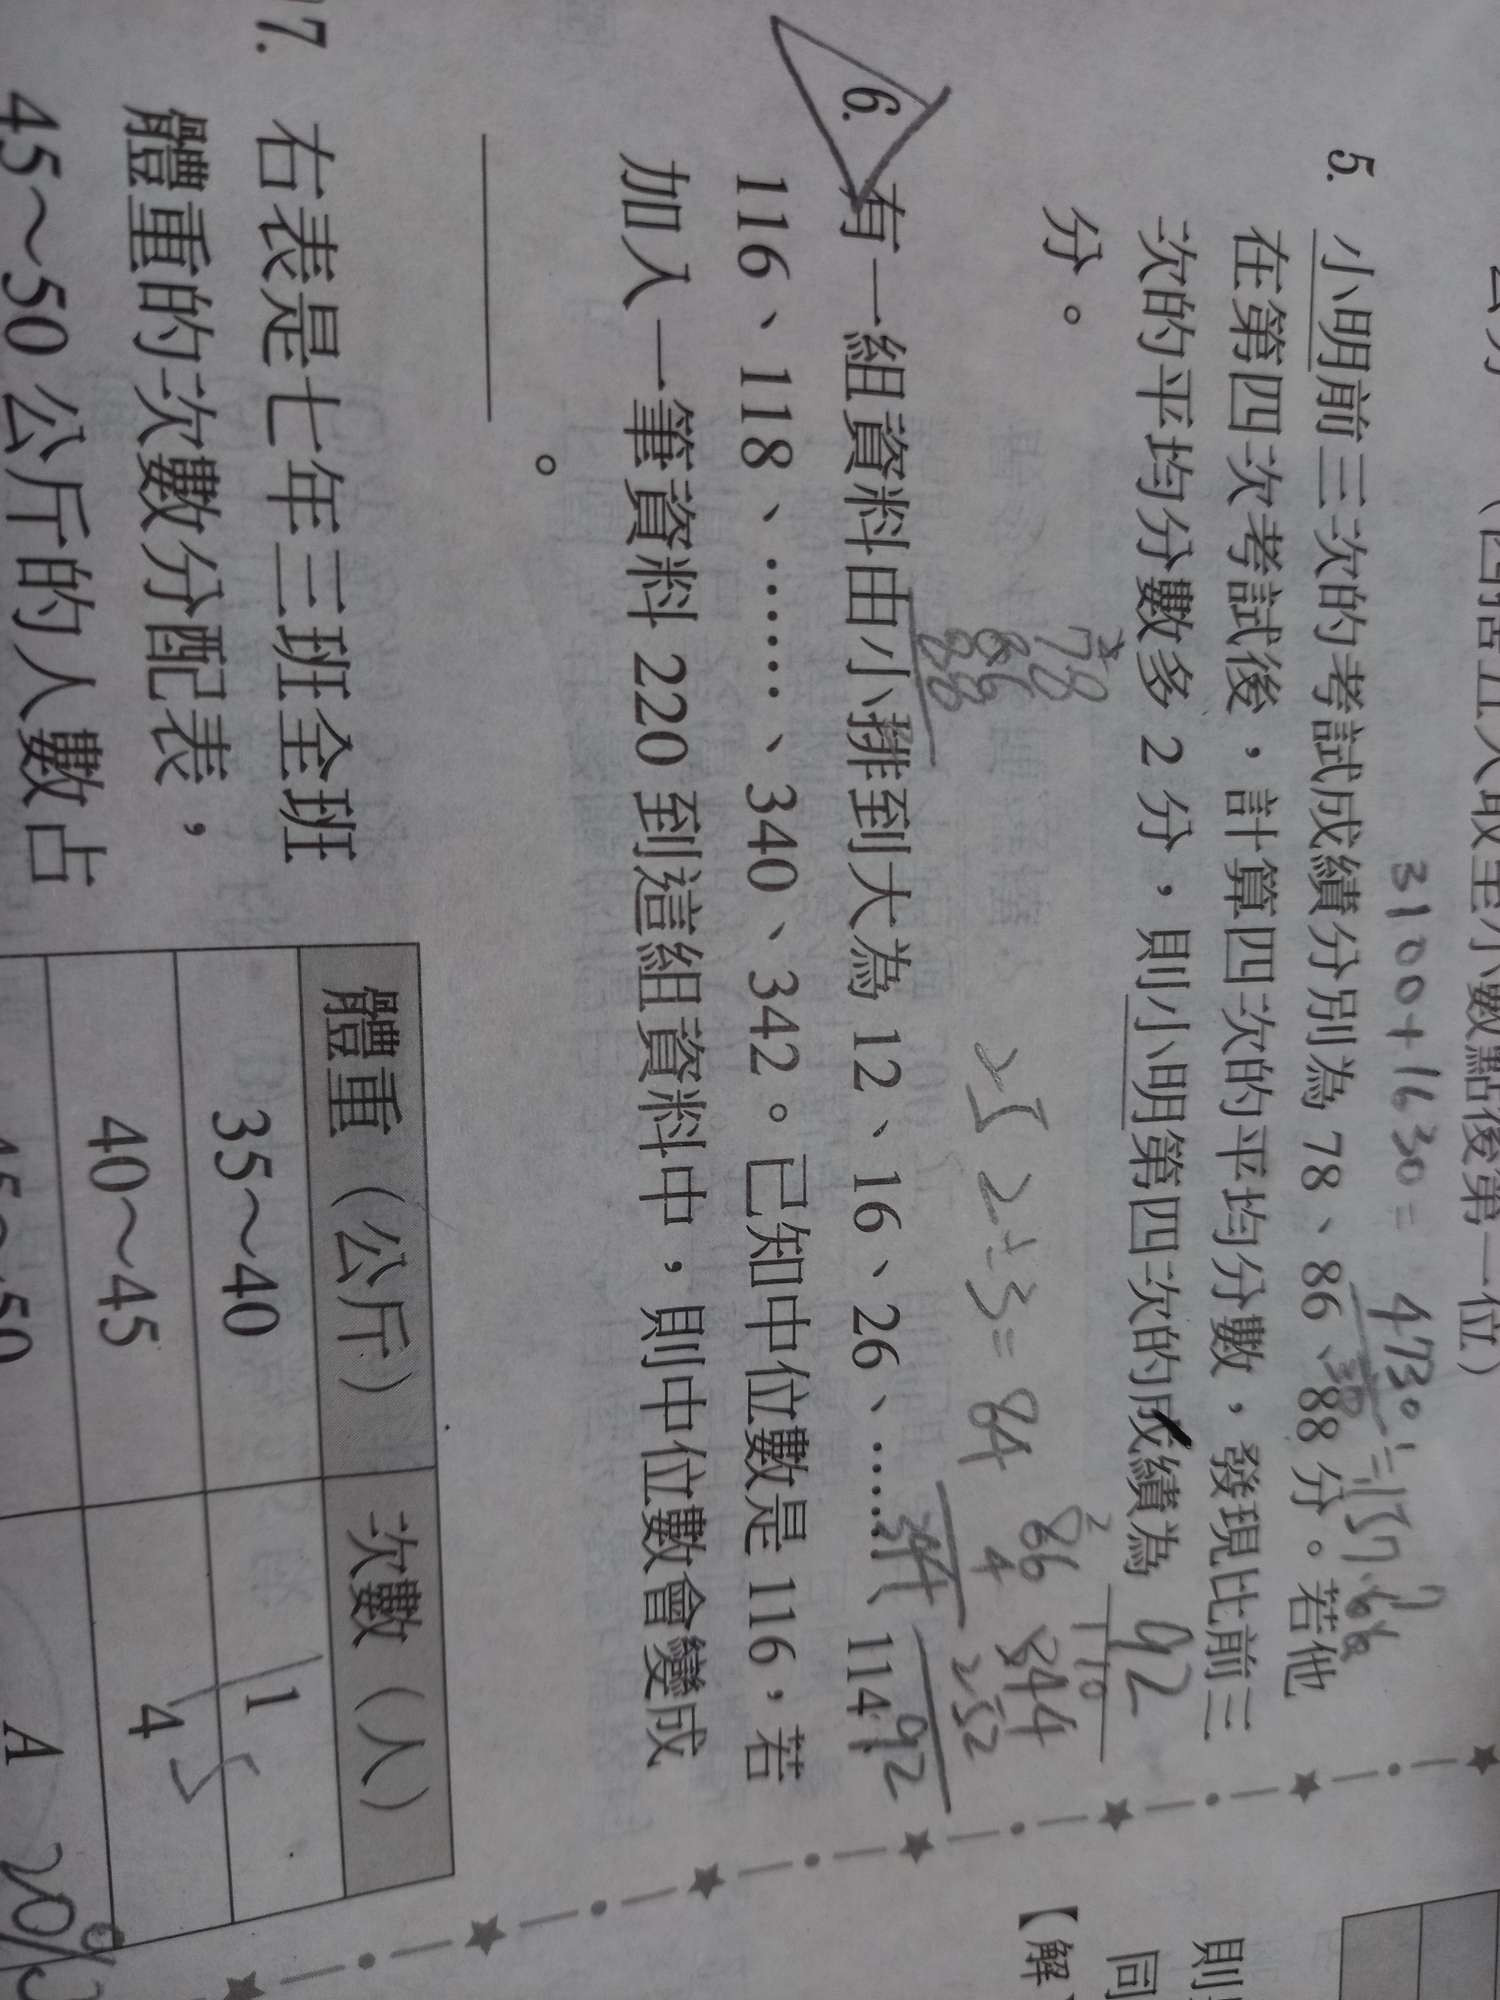 （四捨五入取至小數點後第一位）
3100+1630=4730
5. 小明前三次的考試成績分別為 78、86、88 分。若他
在第四次考試後，計算四次的平均分數，發現比前三
次的平均分數多 2 分，則小明第四次的成績為 92
分。
78
86
88
252÷3=84
86
4
344
252
92
6. 有一組資料由小排到大為 12、16、26、……、114、
116、118、……、340、342。已知中位數是 116，若
加入一筆資料 220 到這組資料中，則中位數會變成
。
7. 右表是七年三班全班
體重的次數分配表，
45～50 公斤的人數占
體重（公斤） 次數（人）
35～40 1
40～45 4
45～50 A
20%
則
同
【解